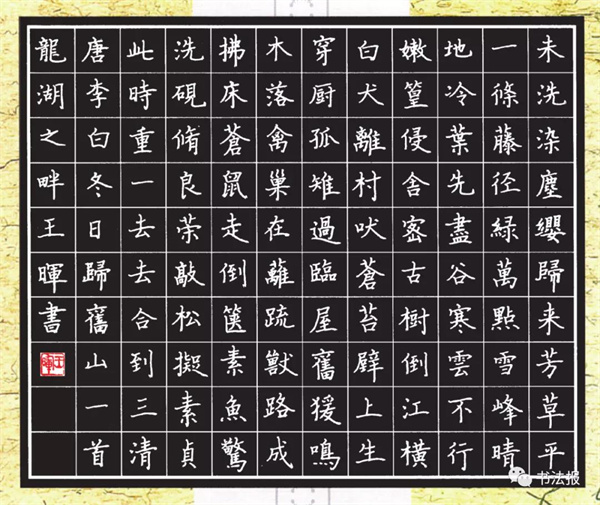 未洗染塵纓歸来芳草平
一條藤径緑萬點雪峰晴
地冷葉先盡谷寒雲不行
嫩篁侵舍密古樹倒江橫
白犬離村吠蒼苔壁上生
穿厨孤雉過臨屋舊猨鳴
木落禽巢在蘺疏獸路成
拂床蒼鼠走倒篋素魚驚
洗硯脩良策敲松擬素貞
此時重一去去合到三清
唐李白冬日歸舊山一首
龍湖之畔王暉書
王暉
书法报